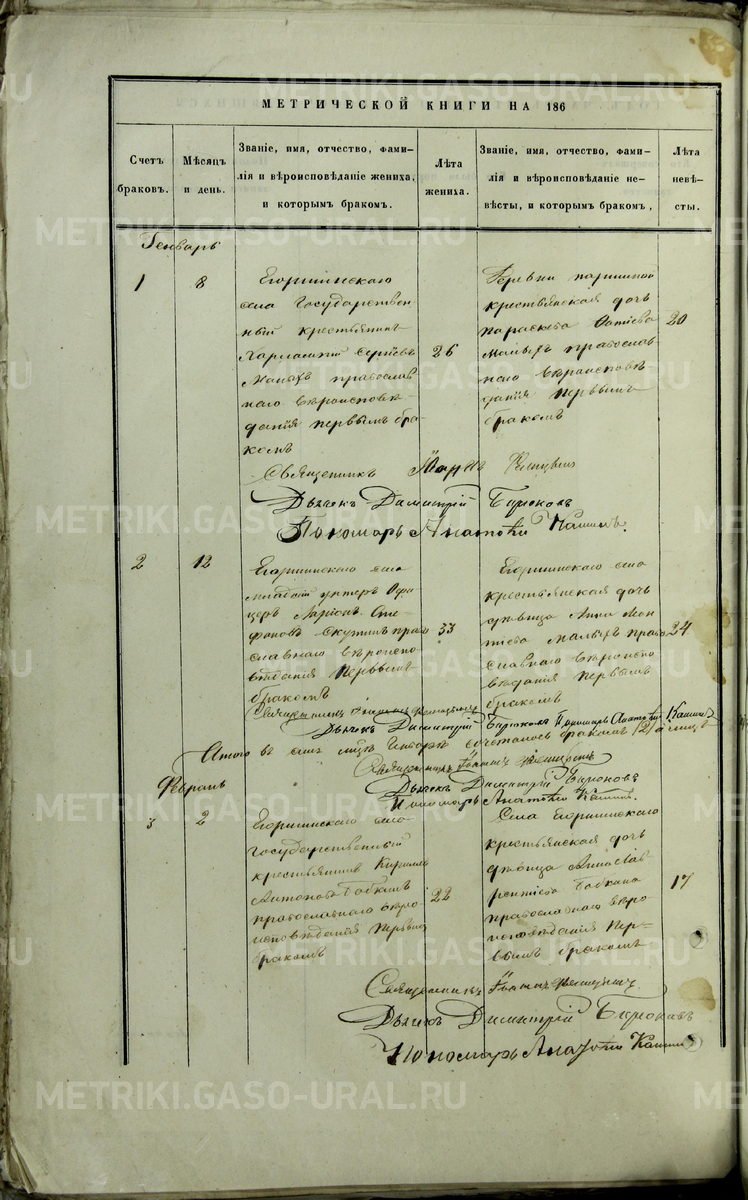 МЕТРИЧЕСКОЙ КНИГИ НА 186
Счетъ браковъ.
Мѣсяцъ и день.
Званіе, имя, отчество, фами-
лія и вѣроисповѣданіе жениха,
и которымъ бракомъ.
Лѣта жениха.
Званіе, имя, отчество, фами-
лія и вѣроисповѣданіе не-
вѣсты, и которымъ бракомъ,
Лѣта невѣ-
сты.
Генварь
1
8
Егоршинскаго
села Государствен
ный крестьянинъ
Харлампій Сергіевъ
Малыхъ православ
наго вѣроисповѣ
данія первымъ бра-
комъ
26
Деревни
крестьянская дочь
Параскева
Малыхъ православ
наго вѣроисповѣ
данія первымъ
бракомъ
20
Священникъ Іоаннъ
Дьячекъ Димитрій Бирюковъ
Пономарь Анатолій Кашинъ.
2
12
Егоршинскаго села
младшій унтеръ Офи
церъ Ларіонъ Сте
фановъ Скутинъ право
славнаго вѣроиспо
вѣданія первымъ
бракомъ
33
Егоршинскаго села
крестьянская дочь
дѣвица Анна Леон
тіева Малыхъ право
славнаго вѣроиспо
вѣданія первымъ
бракомъ
24
Священникъ Іоаннъ
Дьячекъ Димитрій Бирюковъ Пономарь Анатолій Кашинъ
Итого въ семъ мцѣ Генварѣ сочеталось бракомъ 2
Священникъ Іоаннъ
Дьячекъ Димитрій Бирюковъ
Пономарь Анатолій Кашинъ
Февраль
3
2
Егоршинскаго села
Государственный
крестьянинъ Кириллъ
Антоновъ Бабкинъ
православнаго вѣро
исповѣданія первымъ
бракомъ
22
Села Егоршинскаго
крестьянская дочь
дѣвица Анна Лав
рентіева Бабкина
православнаго вѣро
исповѣданія пер-
вымъ бракомъ
17
Священникъ Іоаннъ
Дьячекъ Димитрій Бирюковъ
Пономарь Анатолій Кашинъ
METRIKI.GASO-URAL.RU